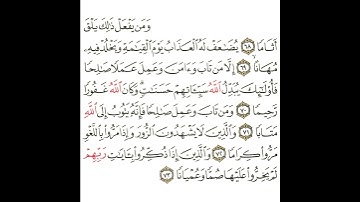 وَمَن يَفْعَلْ ذَٰلِكَ يَلْقَ
أَثَامًا ۝٦٨ يُضَٰعَفْ لَهُ ٱلْعَذَابُ يَوْمَ ٱلْقِيَٰمَةِ وَيَخْلُدْ فِيهِۦ
مُهَانًا ۝٦٩ إِلَّا مَن تَابَ وَءَامَنَ وَعَمِلَ عَمَلًا صَٰلِحًا
فَأُو۟لَٰٓئِكَ يُبَدِّلُ ٱللَّهُ سَيِّـَٔاتِهِمْ حَسَنَٰتٍ ۗ وَكَانَ ٱللَّهُ غَفُورًا
رَّحِيمًا ۝٧٠ وَمَن تَابَ وَعَمِلَ صَٰلِحًا فَإِنَّهُۥ يَتُوبُ إِلَى ٱللَّهِ
مَتَابًا ۝٧١ وَٱلَّذِينَ لَا يَشْهَدُونَ ٱلزُّورَ وَإِذَا مَرُّوا۟ بِٱللَّغْوِ
مَرُّوا۟ كِرَامًا ۝٧٢ وَٱلَّذِينَ إِذَا ذُكِّرُوا۟ بِـَٔايَٰتِ رَبِّهِمْ
لَمْ يَخِرُّوا۟ عَلَيْهَا صُمًّا وَعُمْيَانًا ۝٧٣